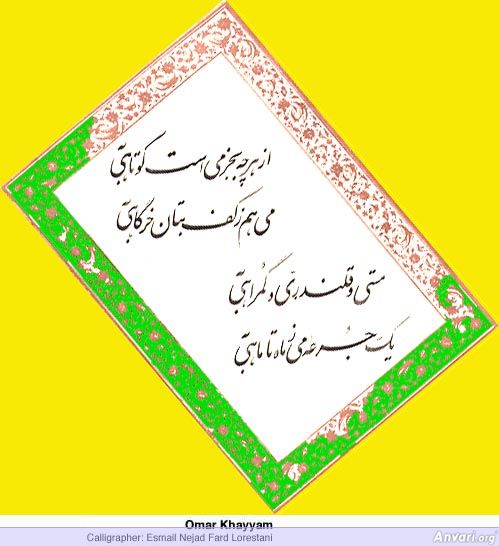 از هر چه بجز می است کوتاهی به
می هم ز کف بتان خرگاهی به
مستی و قلندری و گمراهی به
یک جرعه می ز ماه تا ماهی به
Omar Khayyam
Calligrapher: Esmail Nejad Fard Lorestani
Anvari.org